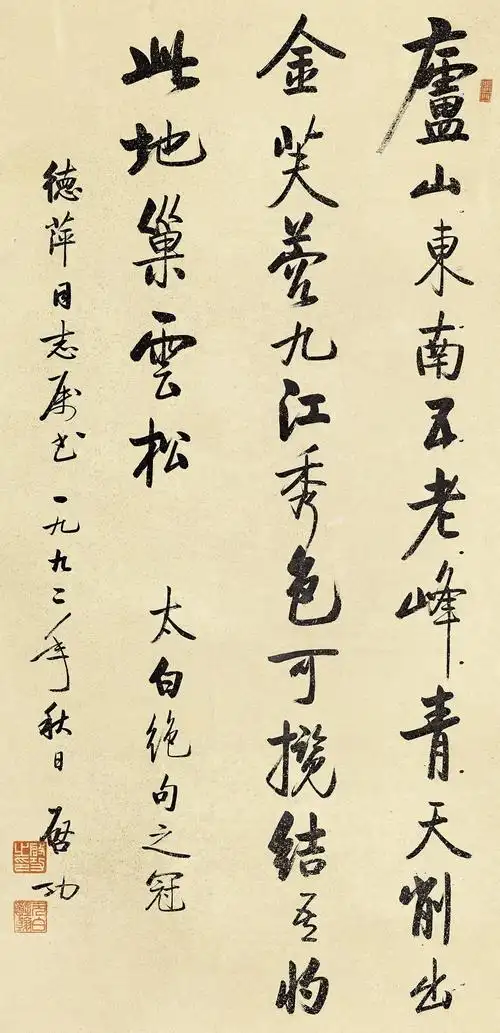 廬山東南五老峰青天削出
金芙蓉九江秀色可攬結吾將
此地巢雲松
太白絶句之冠
德萍同志属书一九九二年秋日
啓功